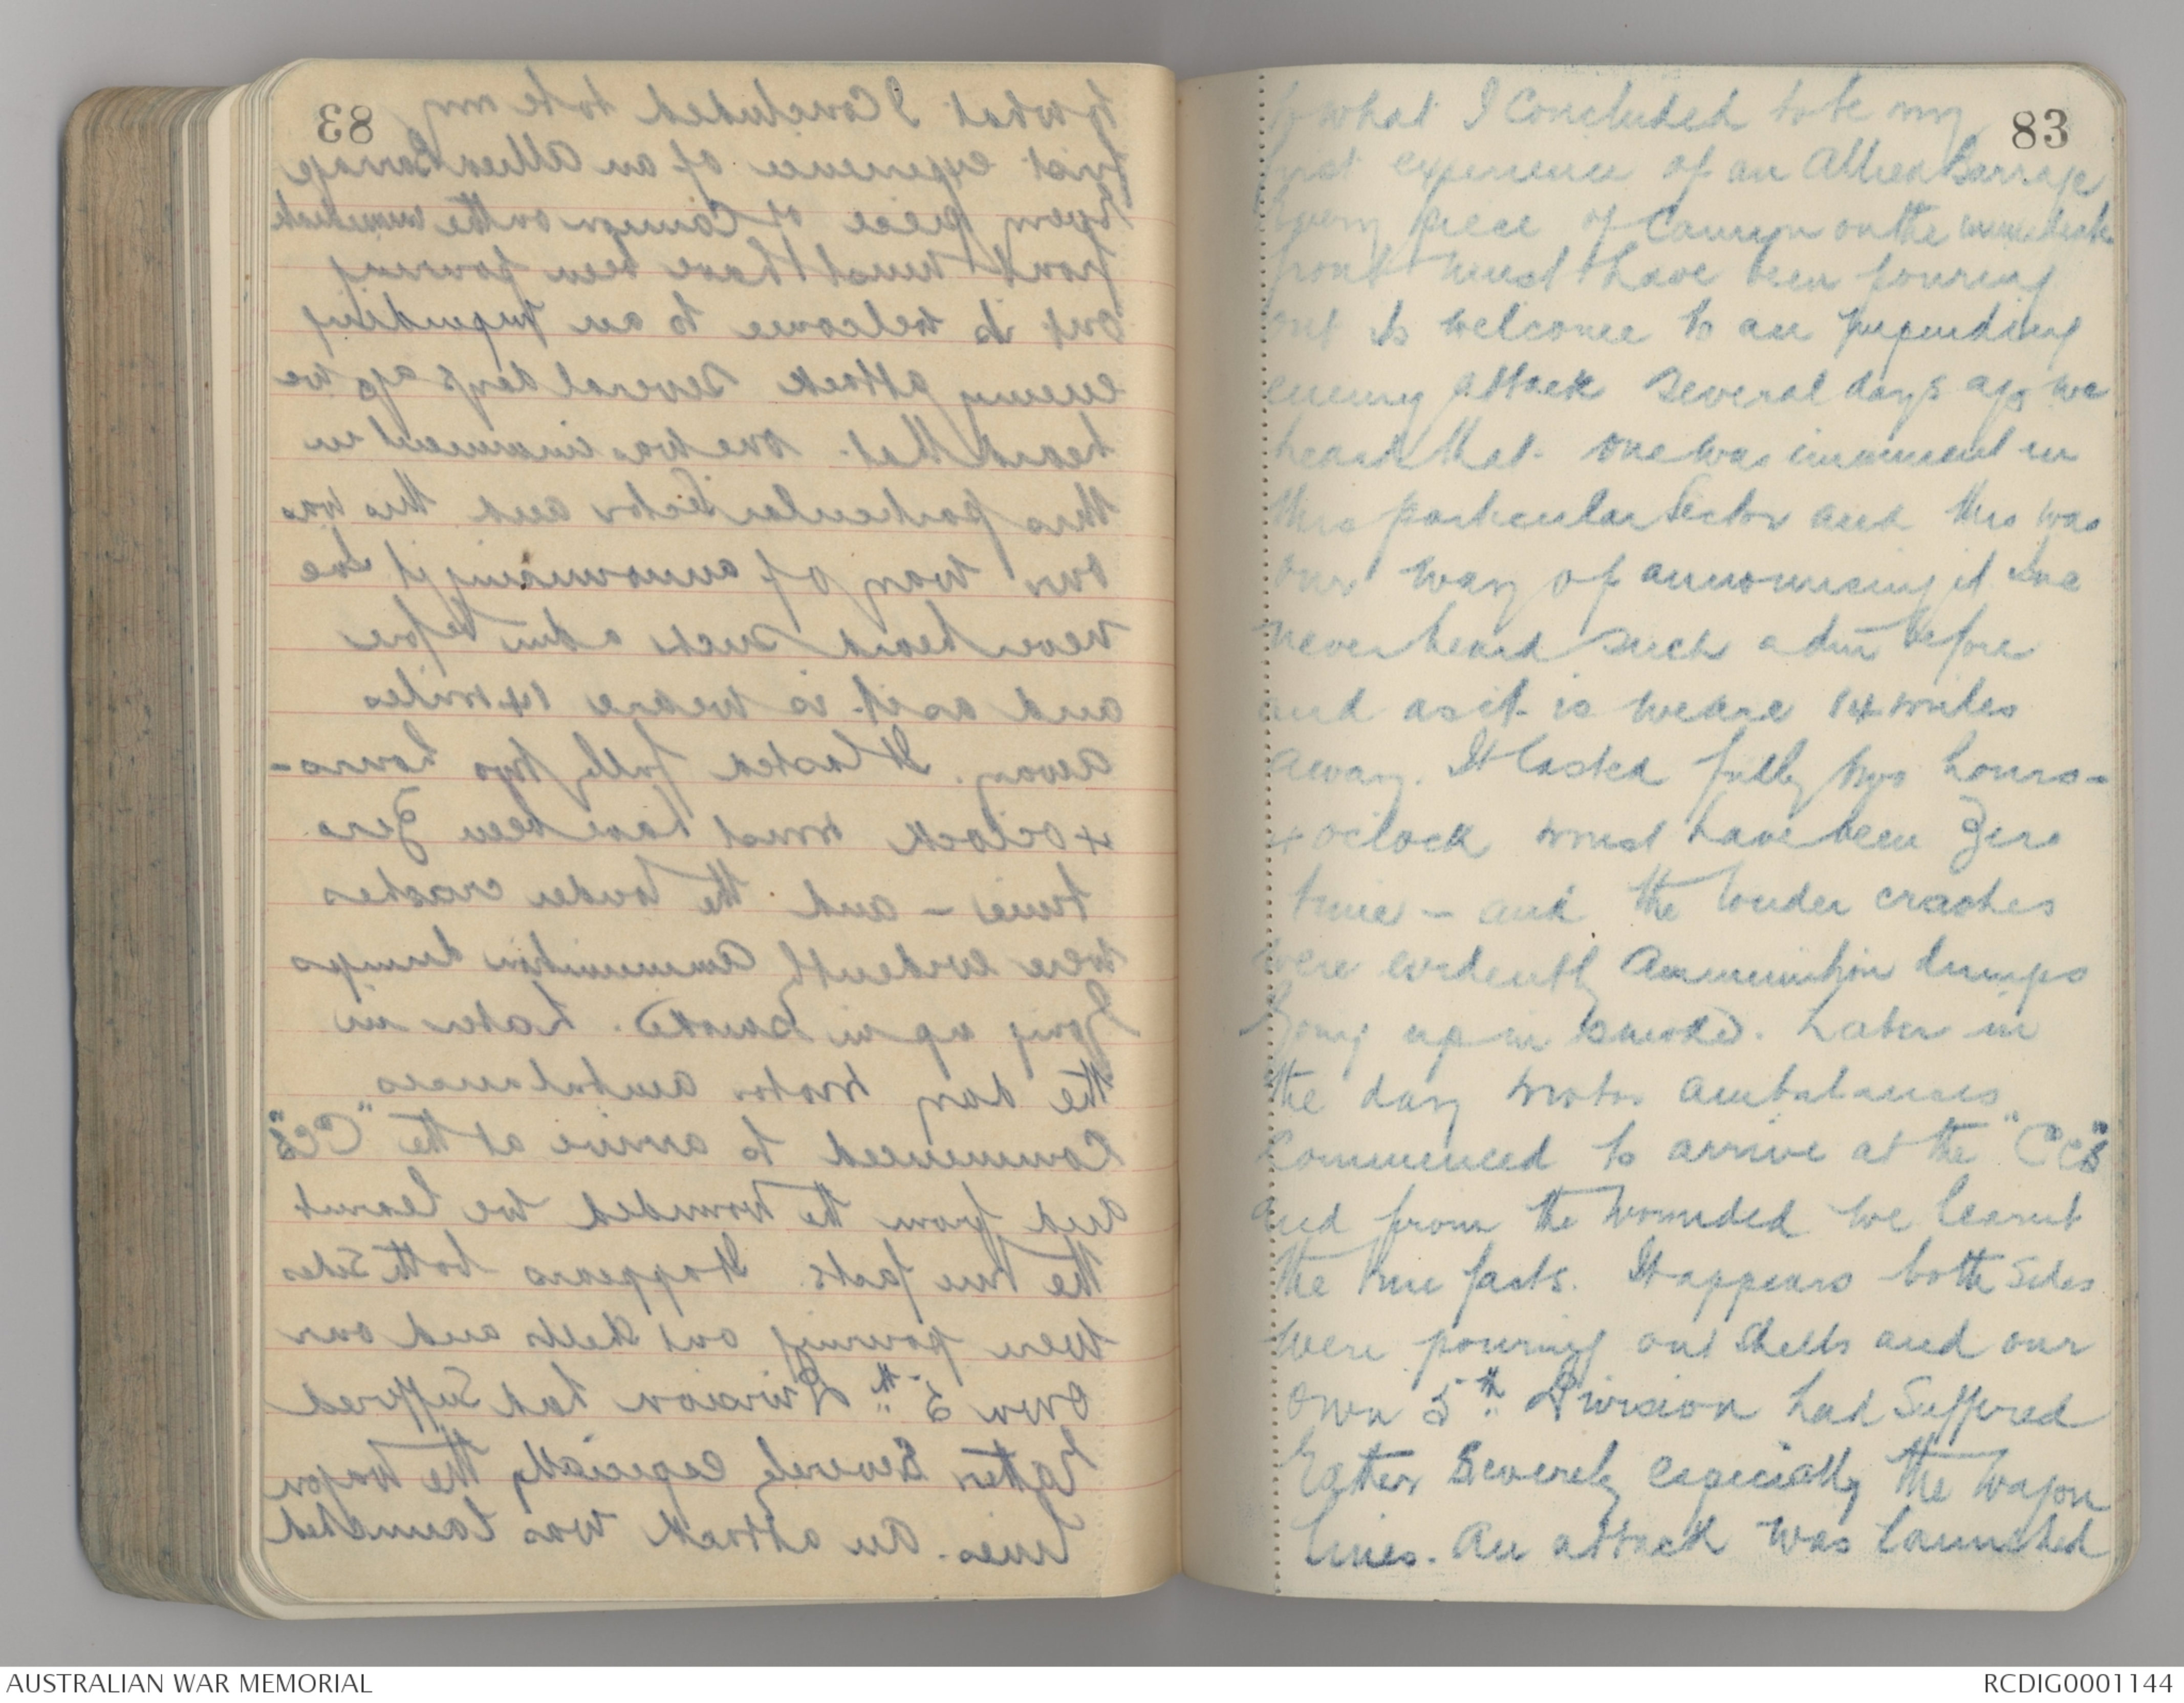 83
to what I Concluded to be my
first experience of an Allied Barrage
Every piece of Cannon on the immediate
front must have been pouring
out its welcome to an impending
enemy attack Several days ago we
heard that one was imminent in
this particular Sector and this was
our way of announcing it
never heard such a din before
and as it is we are 14 miles
away. It lasted fully two hours -
4 oclock must have been Zero
time - and the louder crashes
were evidently Ammunition dumps
Going up in smoke. Later in
the day motor ambulances
Commenced to arrive at the "CCS"
and from the wounded we learnt
the true facts. It appears both sides
were pouring out shells and our
own 5th Division had Suffered
Rather Severely especially the wagon
lines. An attack was launched